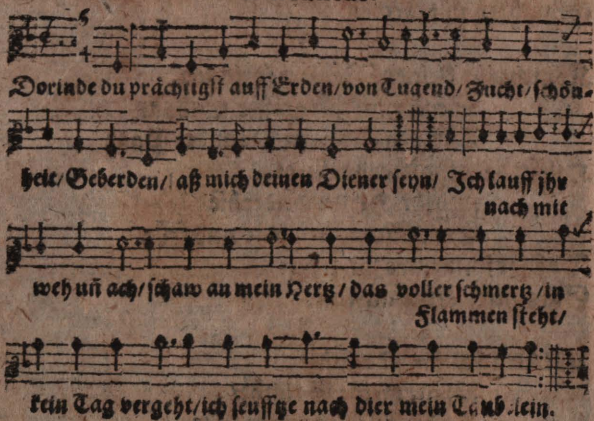 Dorinde du prächtigst auff Erden/von Tugend/Zucht/schön-
heit/Geberden/ aß mich deinen Diener seyn/ Ich lauff jhr
nach mit
weh uñ ach/schaw an mein Hertz/das voller schmertz/in
Flammen steht/
kein Tag vergeht/ich seufftze nach dier mein Taub lein.